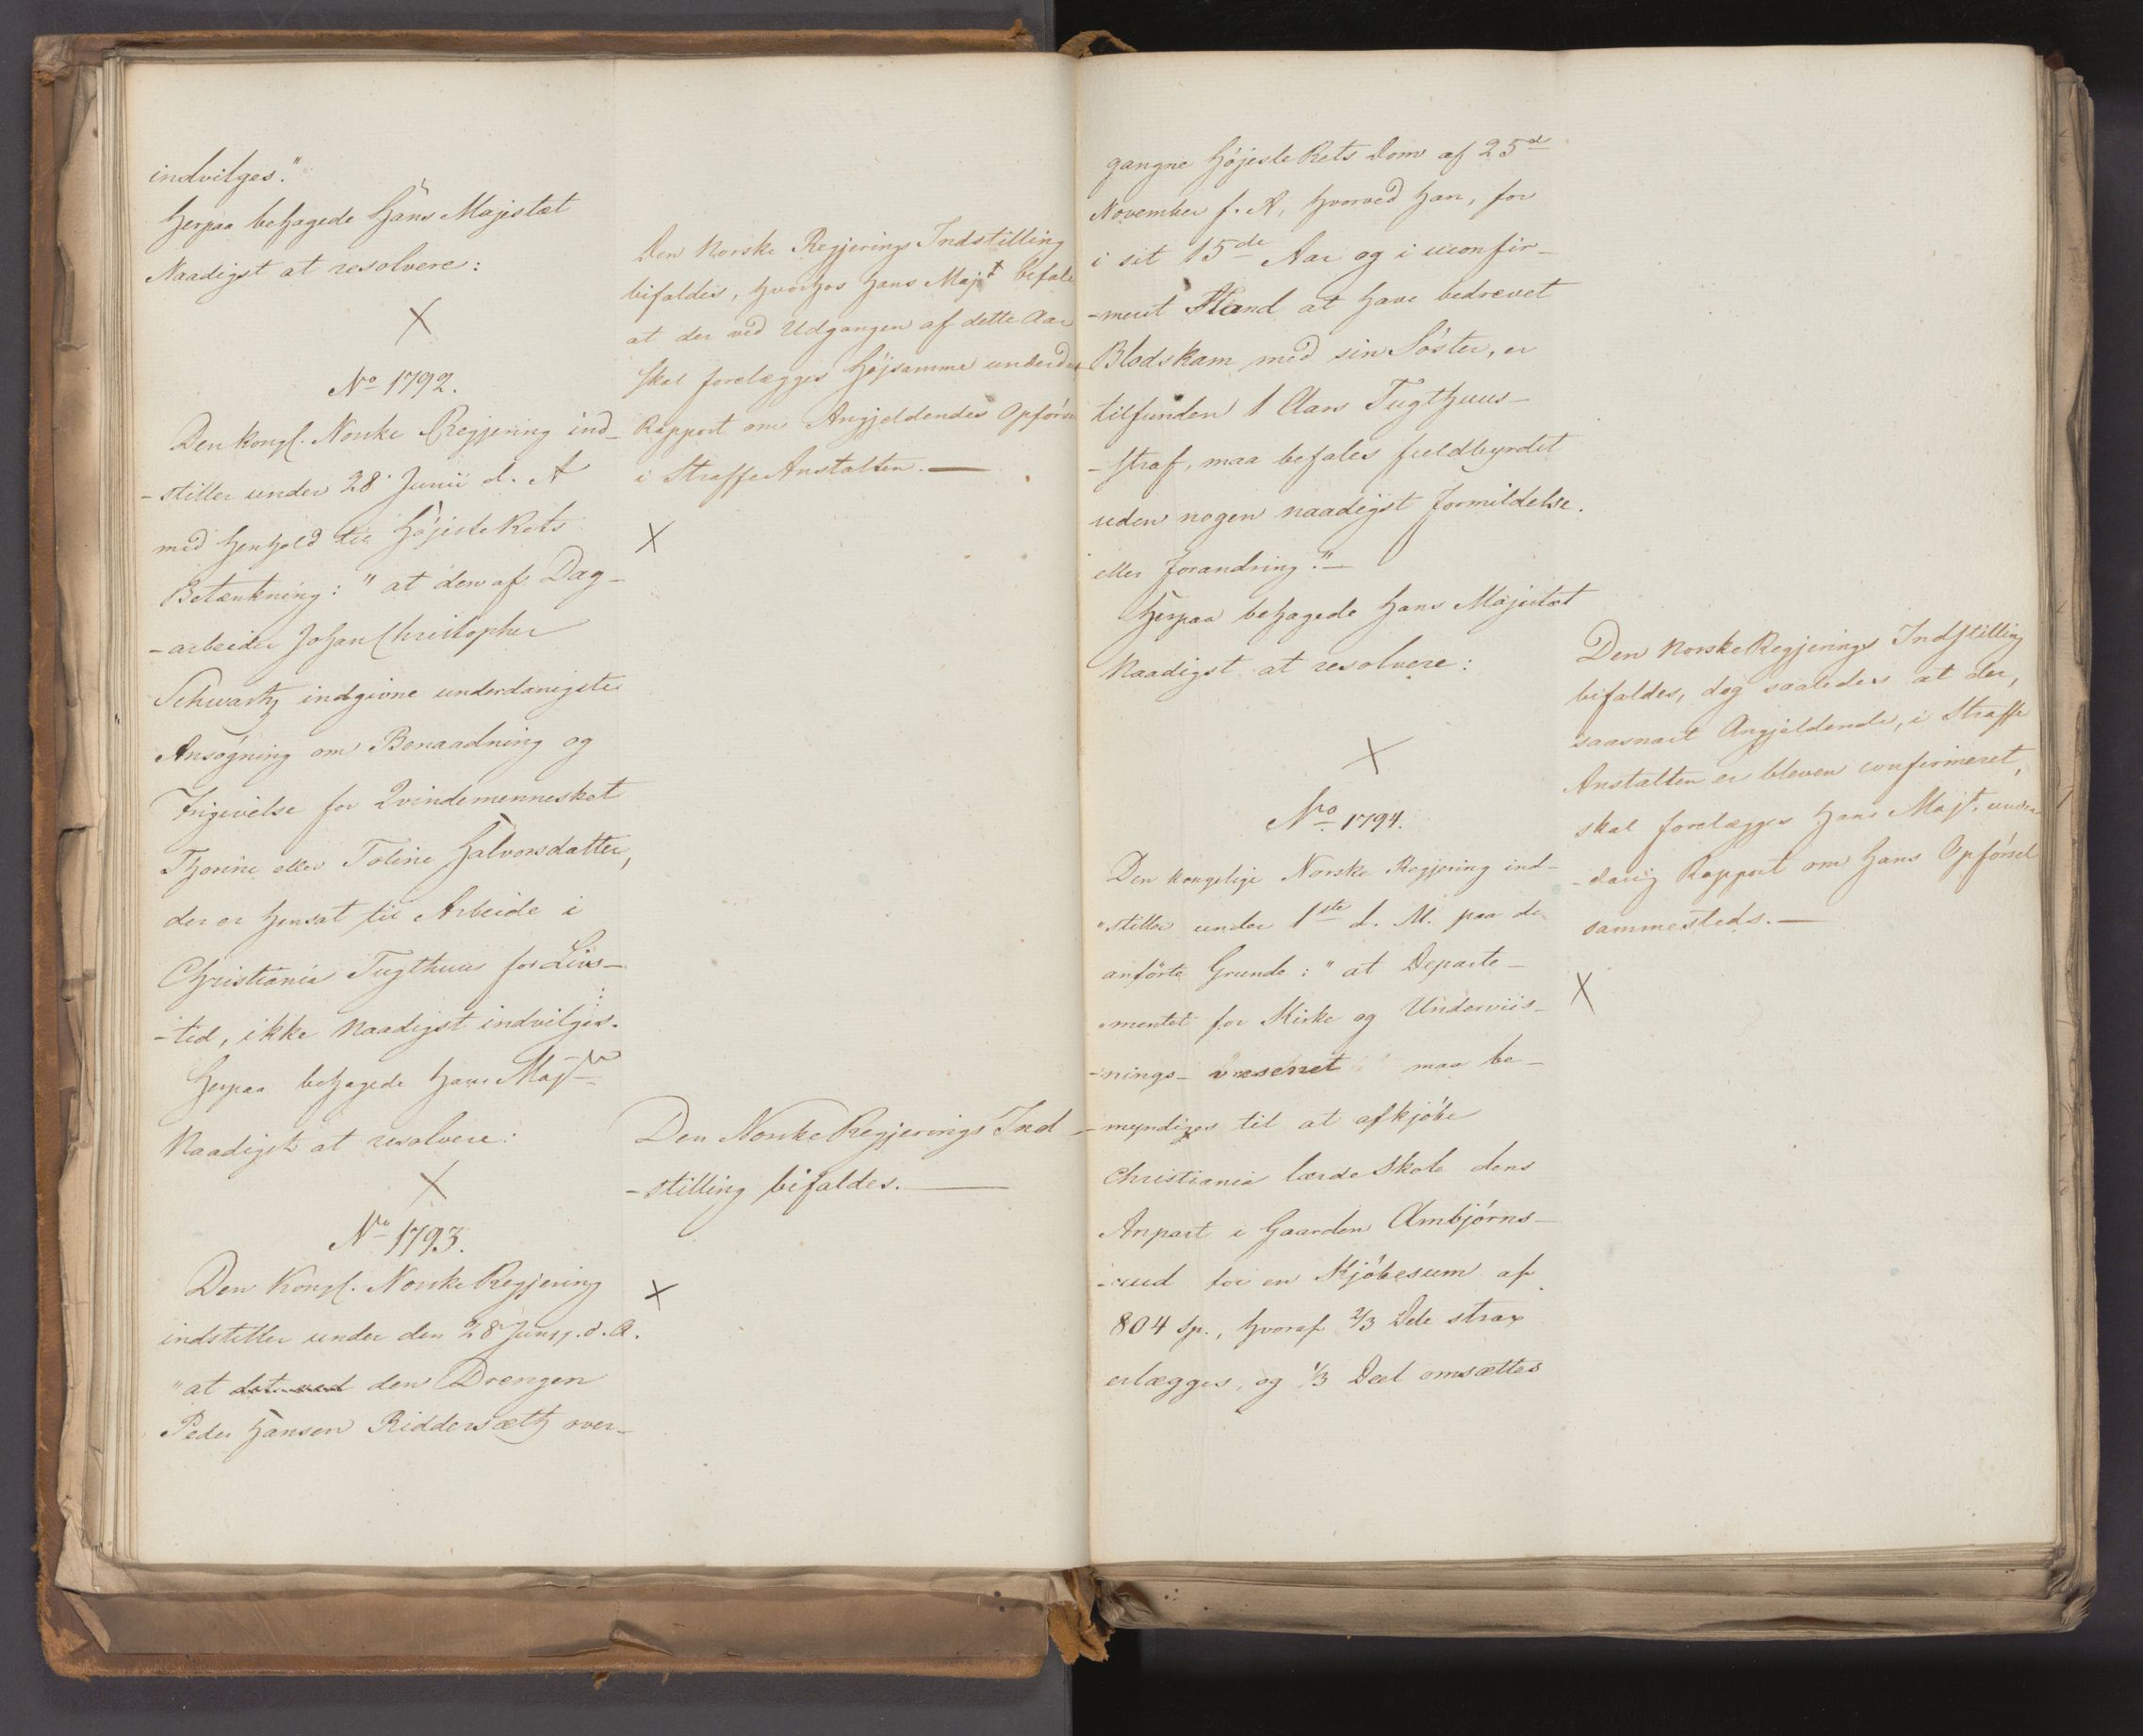 indvilges."
Herpaa behagede Hans Majestæt
Naadigst at resolvere:
X
No 1792.
Den Kongl. Norske Regjering ind-
-stiller under 28. Junii d. A
med Henhold til Højeste Rets
Betænkning: "at den af Dag-
-arbeider Johan Christopher
Schwartz indgivne underdanigste
Ansøgning om Benaadning og
Frigivelse for Qvindemennesket
Thorine eller Toline Halvorsdatter,
der er hensat til Arbeide i
Christiania Tugthuus for Livs-
-tid, ikke naadigst indvilges.
Herpaa behagede Hans Maj
Naadigst at resolvere:
X
No 1793.
Den Kongl. Norske Regjering
indstiller under den 28 Junii d. A.
"at det ved den Drengen
Peder Hansen Riddersæth over-
Den Norske Regjerings Indstilling
bifaldes, hvorhos Hans Majt befale
at der ved Udgangen af dette Aar
skal forelægges Højsamme underd
Rapport om Angjeldendes Opførs
i StraffeAnstalten. —
X
Den Norske Regjerings Ind-
-stilling bifaldes. —
X
gangne Højeste Rets Dom af 25de
November f. A, hvorved han, for
i sit 15de Aar og i uconfir-
-meret Stand at have bedrevet
Blodskam med sin Søster, er
tilfunden 1 Aars Tugthuus-
-straf, maa befales fuldbyrdet
uden nogen naadigst Formildelse
eller Forandring." —
Herpaa behagede Hans Majestæt
Naadigst at resolvere:
X
No. 1794.
Den kongelige Norske Regjering ind-
"stiller under 1ste d. M. paa de
anførte Grunde: "at Departe-
"mentet for Kirke og Underviis-
-nings-væsenet maa be-
-myndiges til at afkjøbe
Christiania lærde Skole dens
Anpart i Gaarden Ambjørns-
-rud for en Kjøbesum af
804 Sp., hvoraf 2/3 Dele strax
erlægges, og 1/3 Deel omsættes
Den Norske Regjerings Indstilling
bifaldes, dog saaledes at der,
saasnart Angjeldende, i Straffe
Anstalten er bleven confirmeret,
skal forelægges Hans Majt. under
-danig Rapport om hans Opførsel
sammesteds. —
X